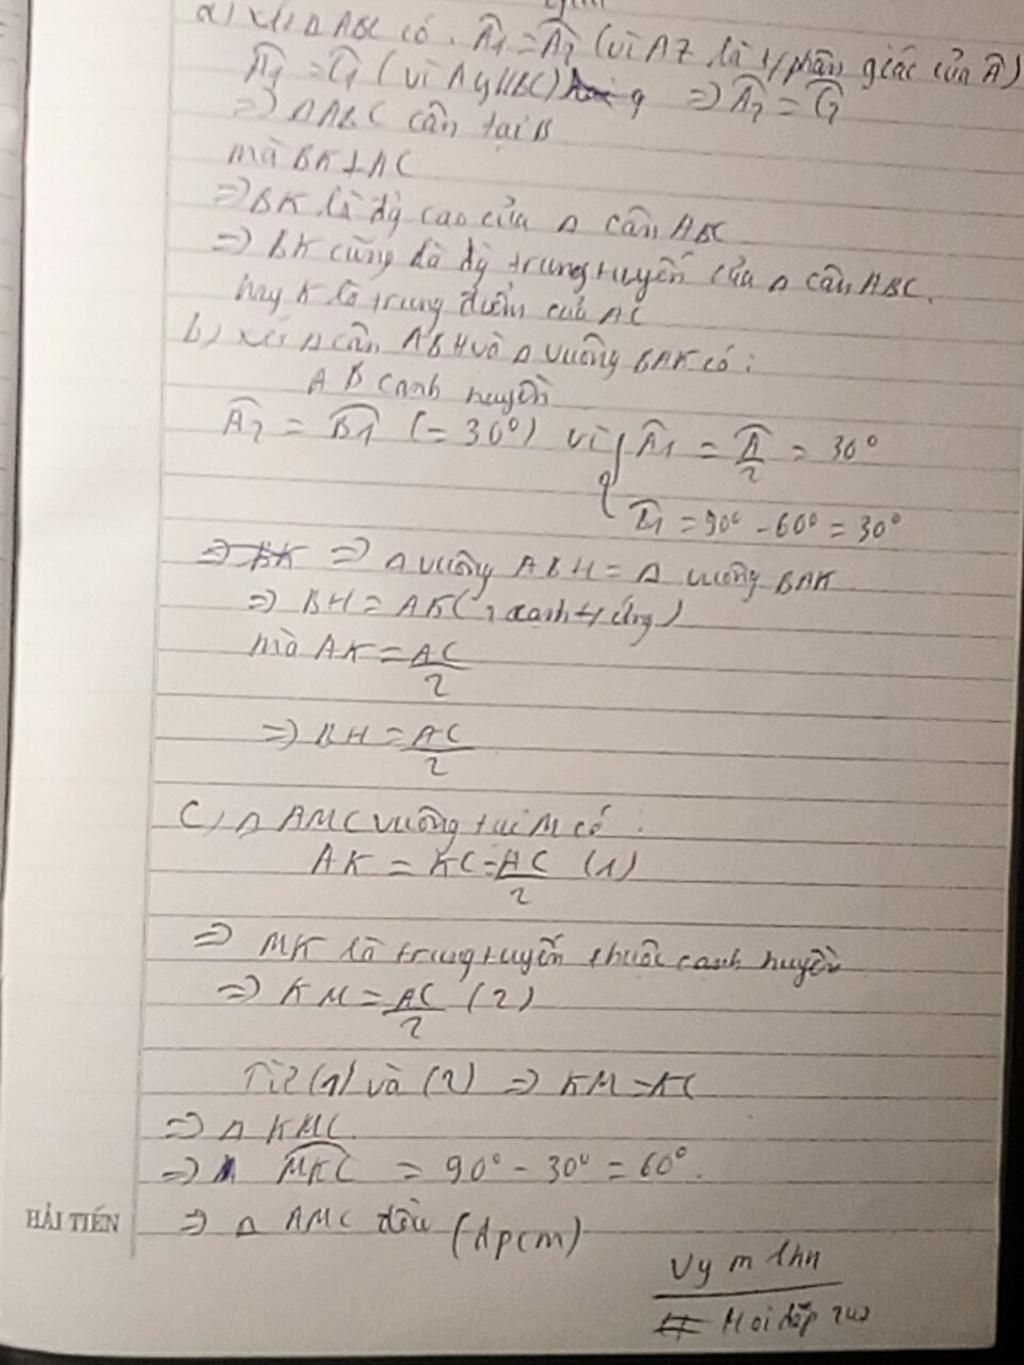 a) xét Δ ABC có: Â1 = Â2 (vì AZ là t/phân giác của Â)
Â1 = Ĉ1 (vì Ay//BC) ⇒ Â2 = Ĉ1
⇒ Δ ABC cân tại B
mà BK ⊥ AC
⇒ BK là đg cao của Δ cân ABC
⇒ BK cũng là đg trung tuyến của Δ cân ABC.
hay K là trung điểm của AC
b) xét Δ cân ABH và Δ vuông BAK có:
AB cạnh huyền
Â2 = B̂1 (= 30°) vì { Â1 = Â/2 = 30°
B̂1 = 90° - 60° = 30°
⇒ Δ vuông ABH = Δ vuông BAK
⇒ BH = AK (2 cạnh t/ứng)
mà AK = AC/2
⇒ BH = AC/2
C) Δ AMC vuông tại M có:
AK = KC = AC/2 (1)
⇒ MK là trung tuyến thuộc cạnh huyền
⇒ KM = AC/2 (2)
Từ (1) và (2) ⇒ KM = KC
⇒ Δ KMC
⇒ MKC = 90° - 30° = 60°.
⇒ Δ AMC đều (đpcm)
HẢI TIẾN
Vy m lhn
# Hoidap 247